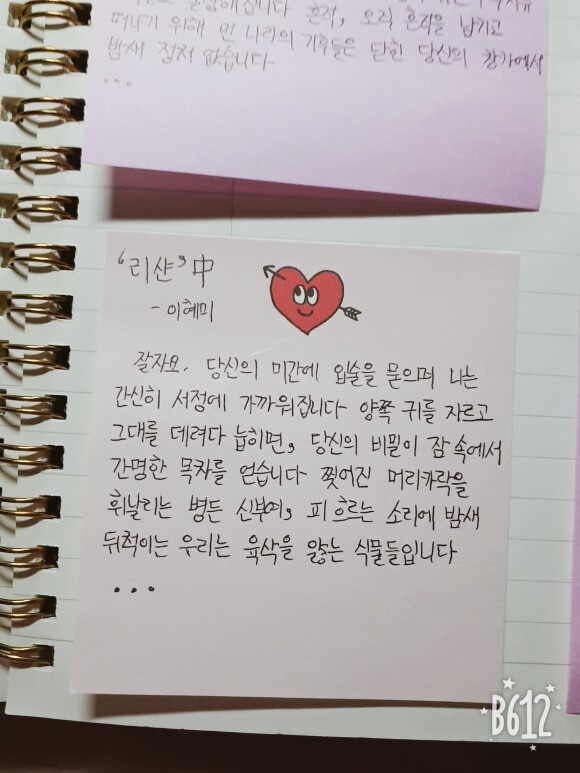 떠나기 위해 먼 나라의 기후들은 닫힌 당신의 창가에서
밤새 정처 없습니다
...
‘리샨’ 中
- 이혜미
잘자요. 당신의 미간에 입술을 묻으며 나는
간신히 서정에 가까워집니다 양쪽 귀를 자르고
그대를 데려다 눕히면, 당신의 비밀이 잠 속에서
간명한 목차를 얻습니다 찢어진 머리카락을
휘날리는 병든 신부여, 피 흐르는 소리에 밤새
뒤척이는 우리는 육삭을 앓는 식물들입니다
...
B612